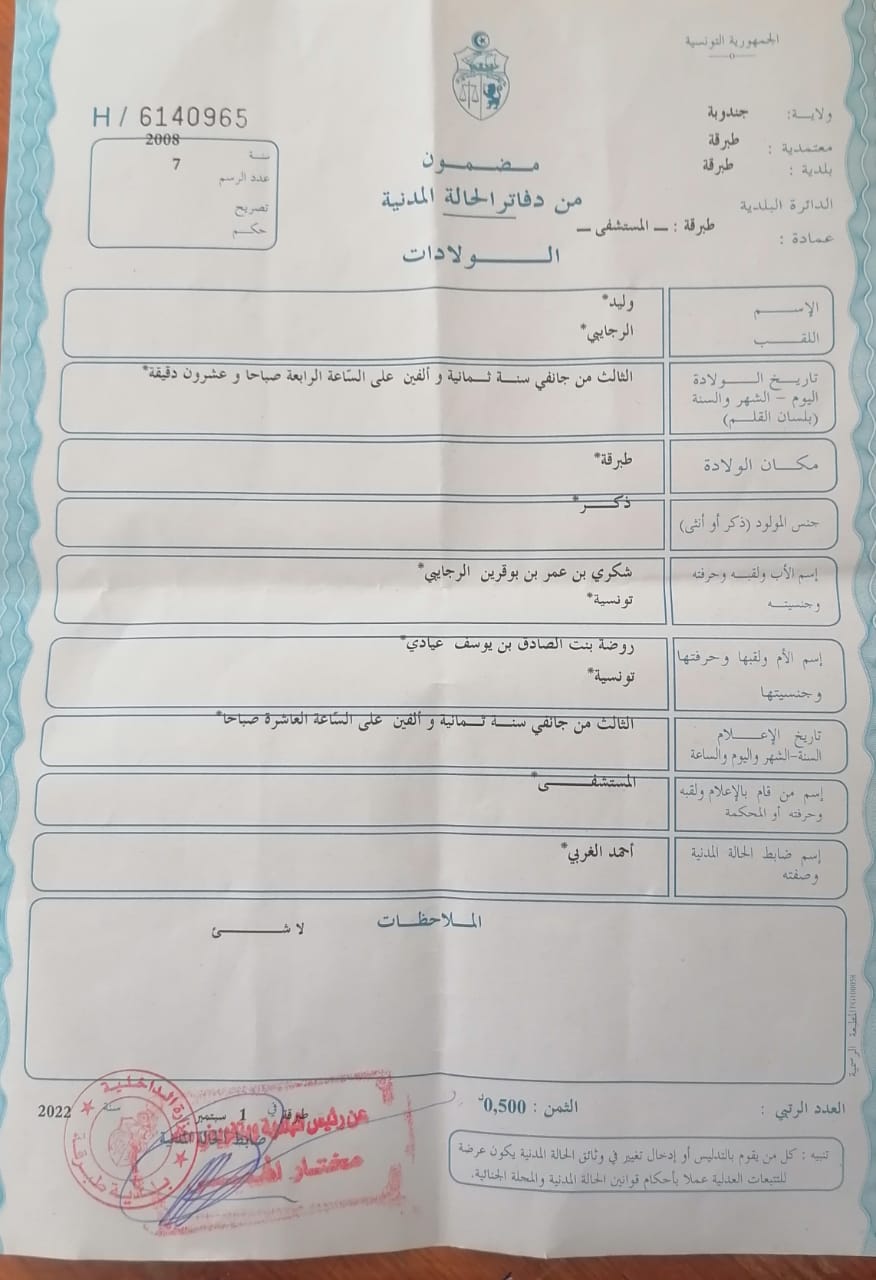 الجمهورية التونسية
ولاية: جندوبة
معتمدية : طبرقة
بلدية : طبرقة
الدائرة البلدية
عمادة : طبرقة : ــ المستشفى ــ
H / 6140965
سنة 2008
عدد الرسم 7
تصريح
حكم
مضمون
من دفاتر الحالة المدنية
الولادات
الإسم وليد*
اللقب الرجايبي*
تاريخ الولادة
اليوم – الشهر والسنة
(بلسان القلم)
الثالث من جانفي سنة ثمانية و ألفين على الساعة الرابعة صباحا و عشرون دقيقة*
مكان الولادة طبرقة*
جنس المولود (ذكر أو أنثى) ذكر*
إسم الأب ولقبه وحرفته
وجنسيته
شكري بن عمر بن بوقرين الرجايبي*
تونسية*
إسم الأم ولقبها وحرفتها
وجنسيتها
روضة بنت الصادق بن يوسف عيادي*
تونسية*
تاريخ الإعلام
السنة–الشهر واليوم والساعة
الثالث من جانفي سنة ثمانية و ألفين على الساعة العاشرة صباحا*
إسم من قام بالإعلام ولقبه
وحرفته أو المحكمة
المستشفى*
إسم ضابط الحالة المدنية
وصفته
أحمد الغربي*
الملاحظات
لا شئ
المطبعة الرسمية
العدد الرتبي :
الثمن : 0,500د
طبرقة في 1 سبتمبر سنة 2022
ضابط الحالة المدنية
عن رئيس البلدية وبتفويض
مختار
وزارة الداخلية
بلدية طبرقة
تنبيه : كل من يقوم بالتدليس أو إدخال تغيير في وثائق الحالة المدنية يكون عرضة
للتتبعات العدلية عملا بأحكام قوانين الحالة المدنية والمجلة الجنائية.